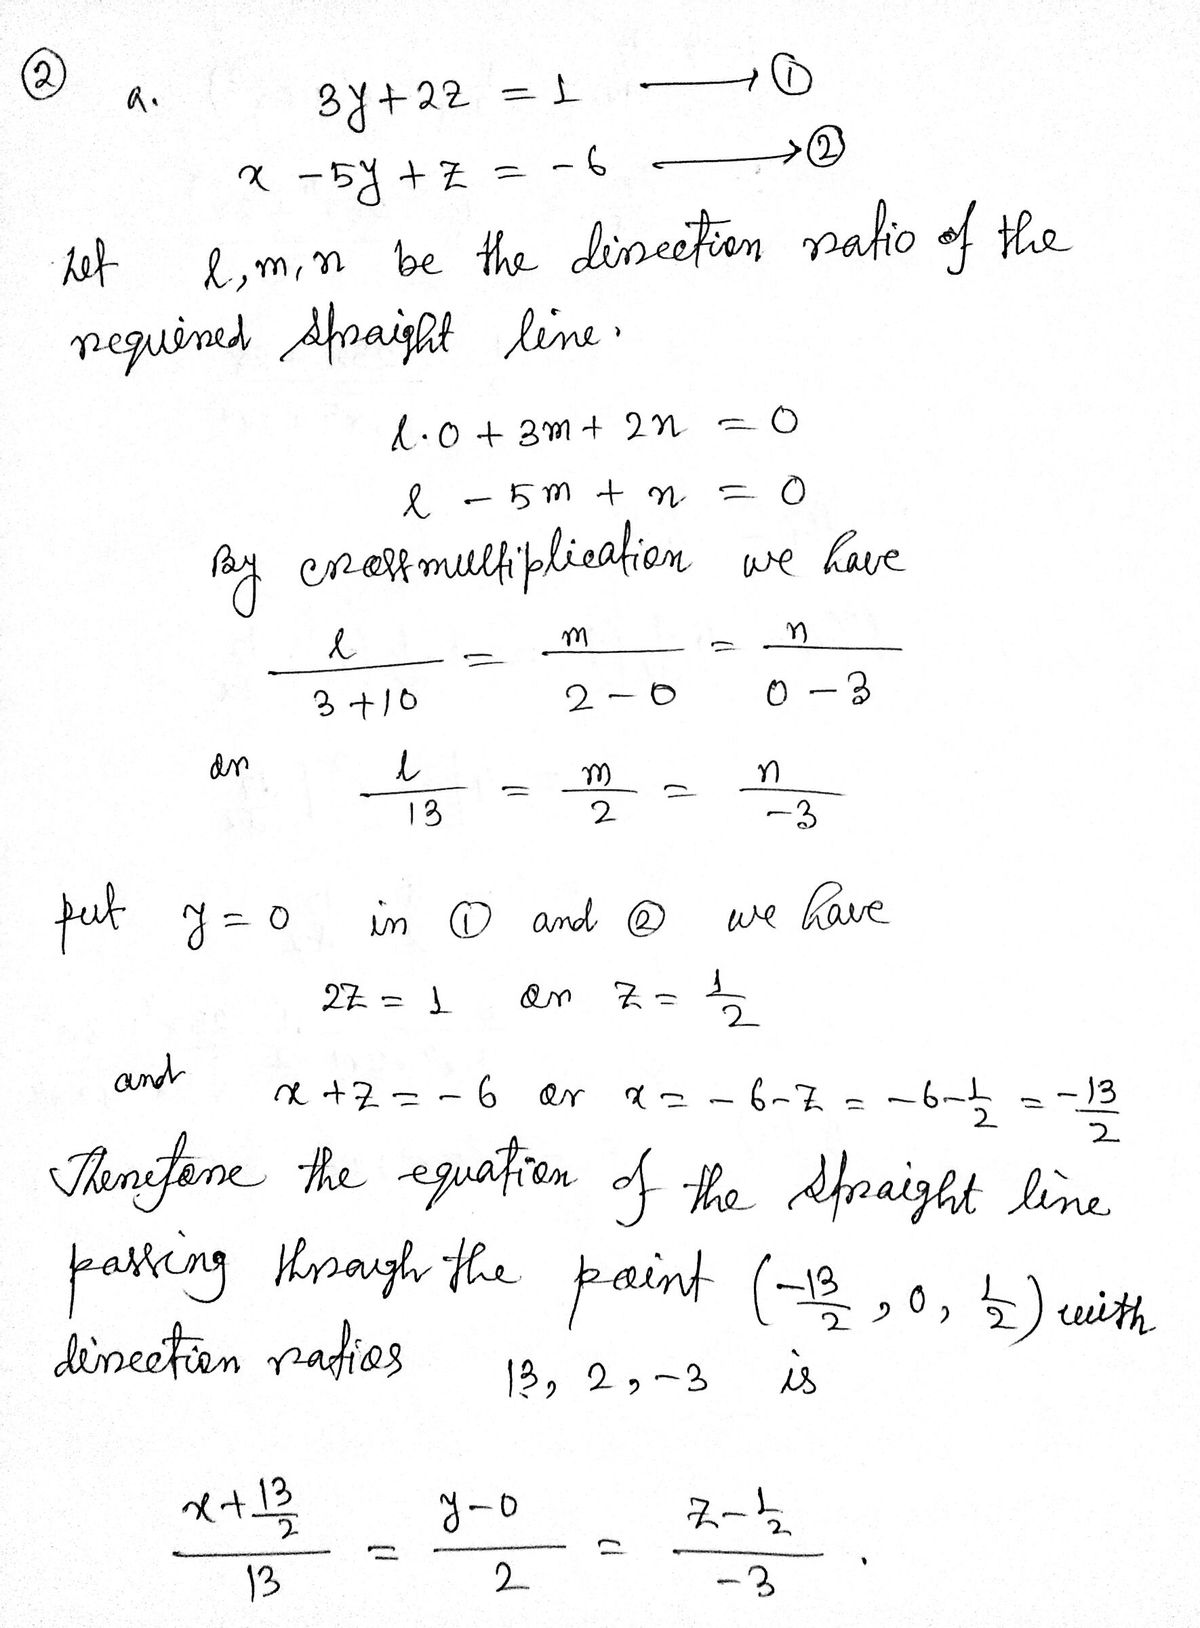 ② a. 3y+2z = 1 ⟶ ①
x - 5y + z = -6 ⟶ ②
Let l, m, n be the direction ratio of the
required straight line.
l·0 + 3m + 2n = 0
l - 5m + n = 0
By crossmultiplication we have
l/(3+10) = m/(2-0) = n/(0-3)
or l/13 = m/2 = n/-3
put y = 0 in ① and ② we have
2z = 1 or z = 1/2
and x + z = -6 or x = -6-z = -6-1/2 = -13/2
Therefore the equation of the straight line
passing through the point (-13/2, 0, 1/2) with
direction ratios 13, 2, -3 is
(x+13/2)/13 = (y-0)/2 = (z-1/2)/-3.